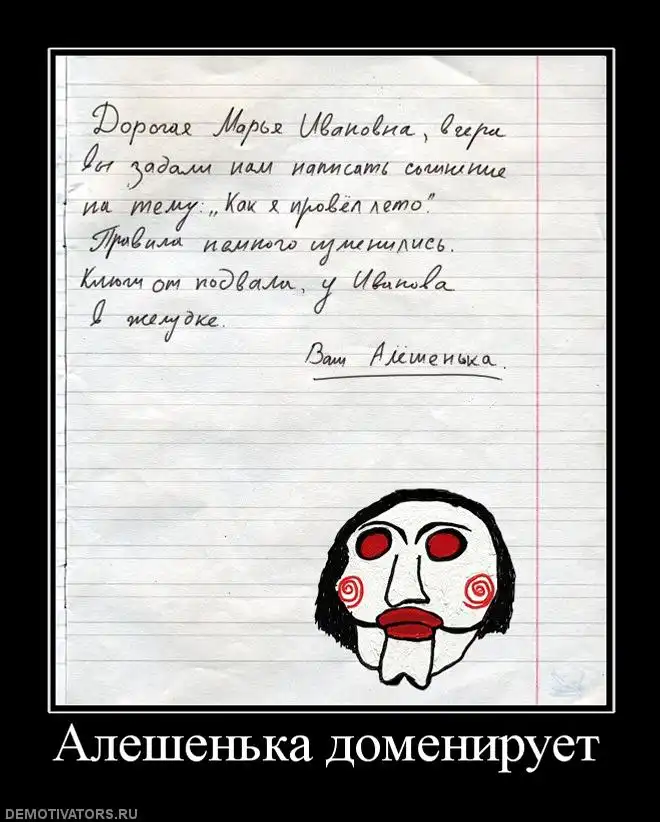 Дорогая Марья Ивановна, вчера
Вы задали нам написать сочинение
на тему: „Как я провёл лето".
Правила немного изменились.
Ключ от подвала, у Иванова
в желудке.
Ваш Алёшенька.
Алешенька доменирует
DEMOTIVATORS.RU